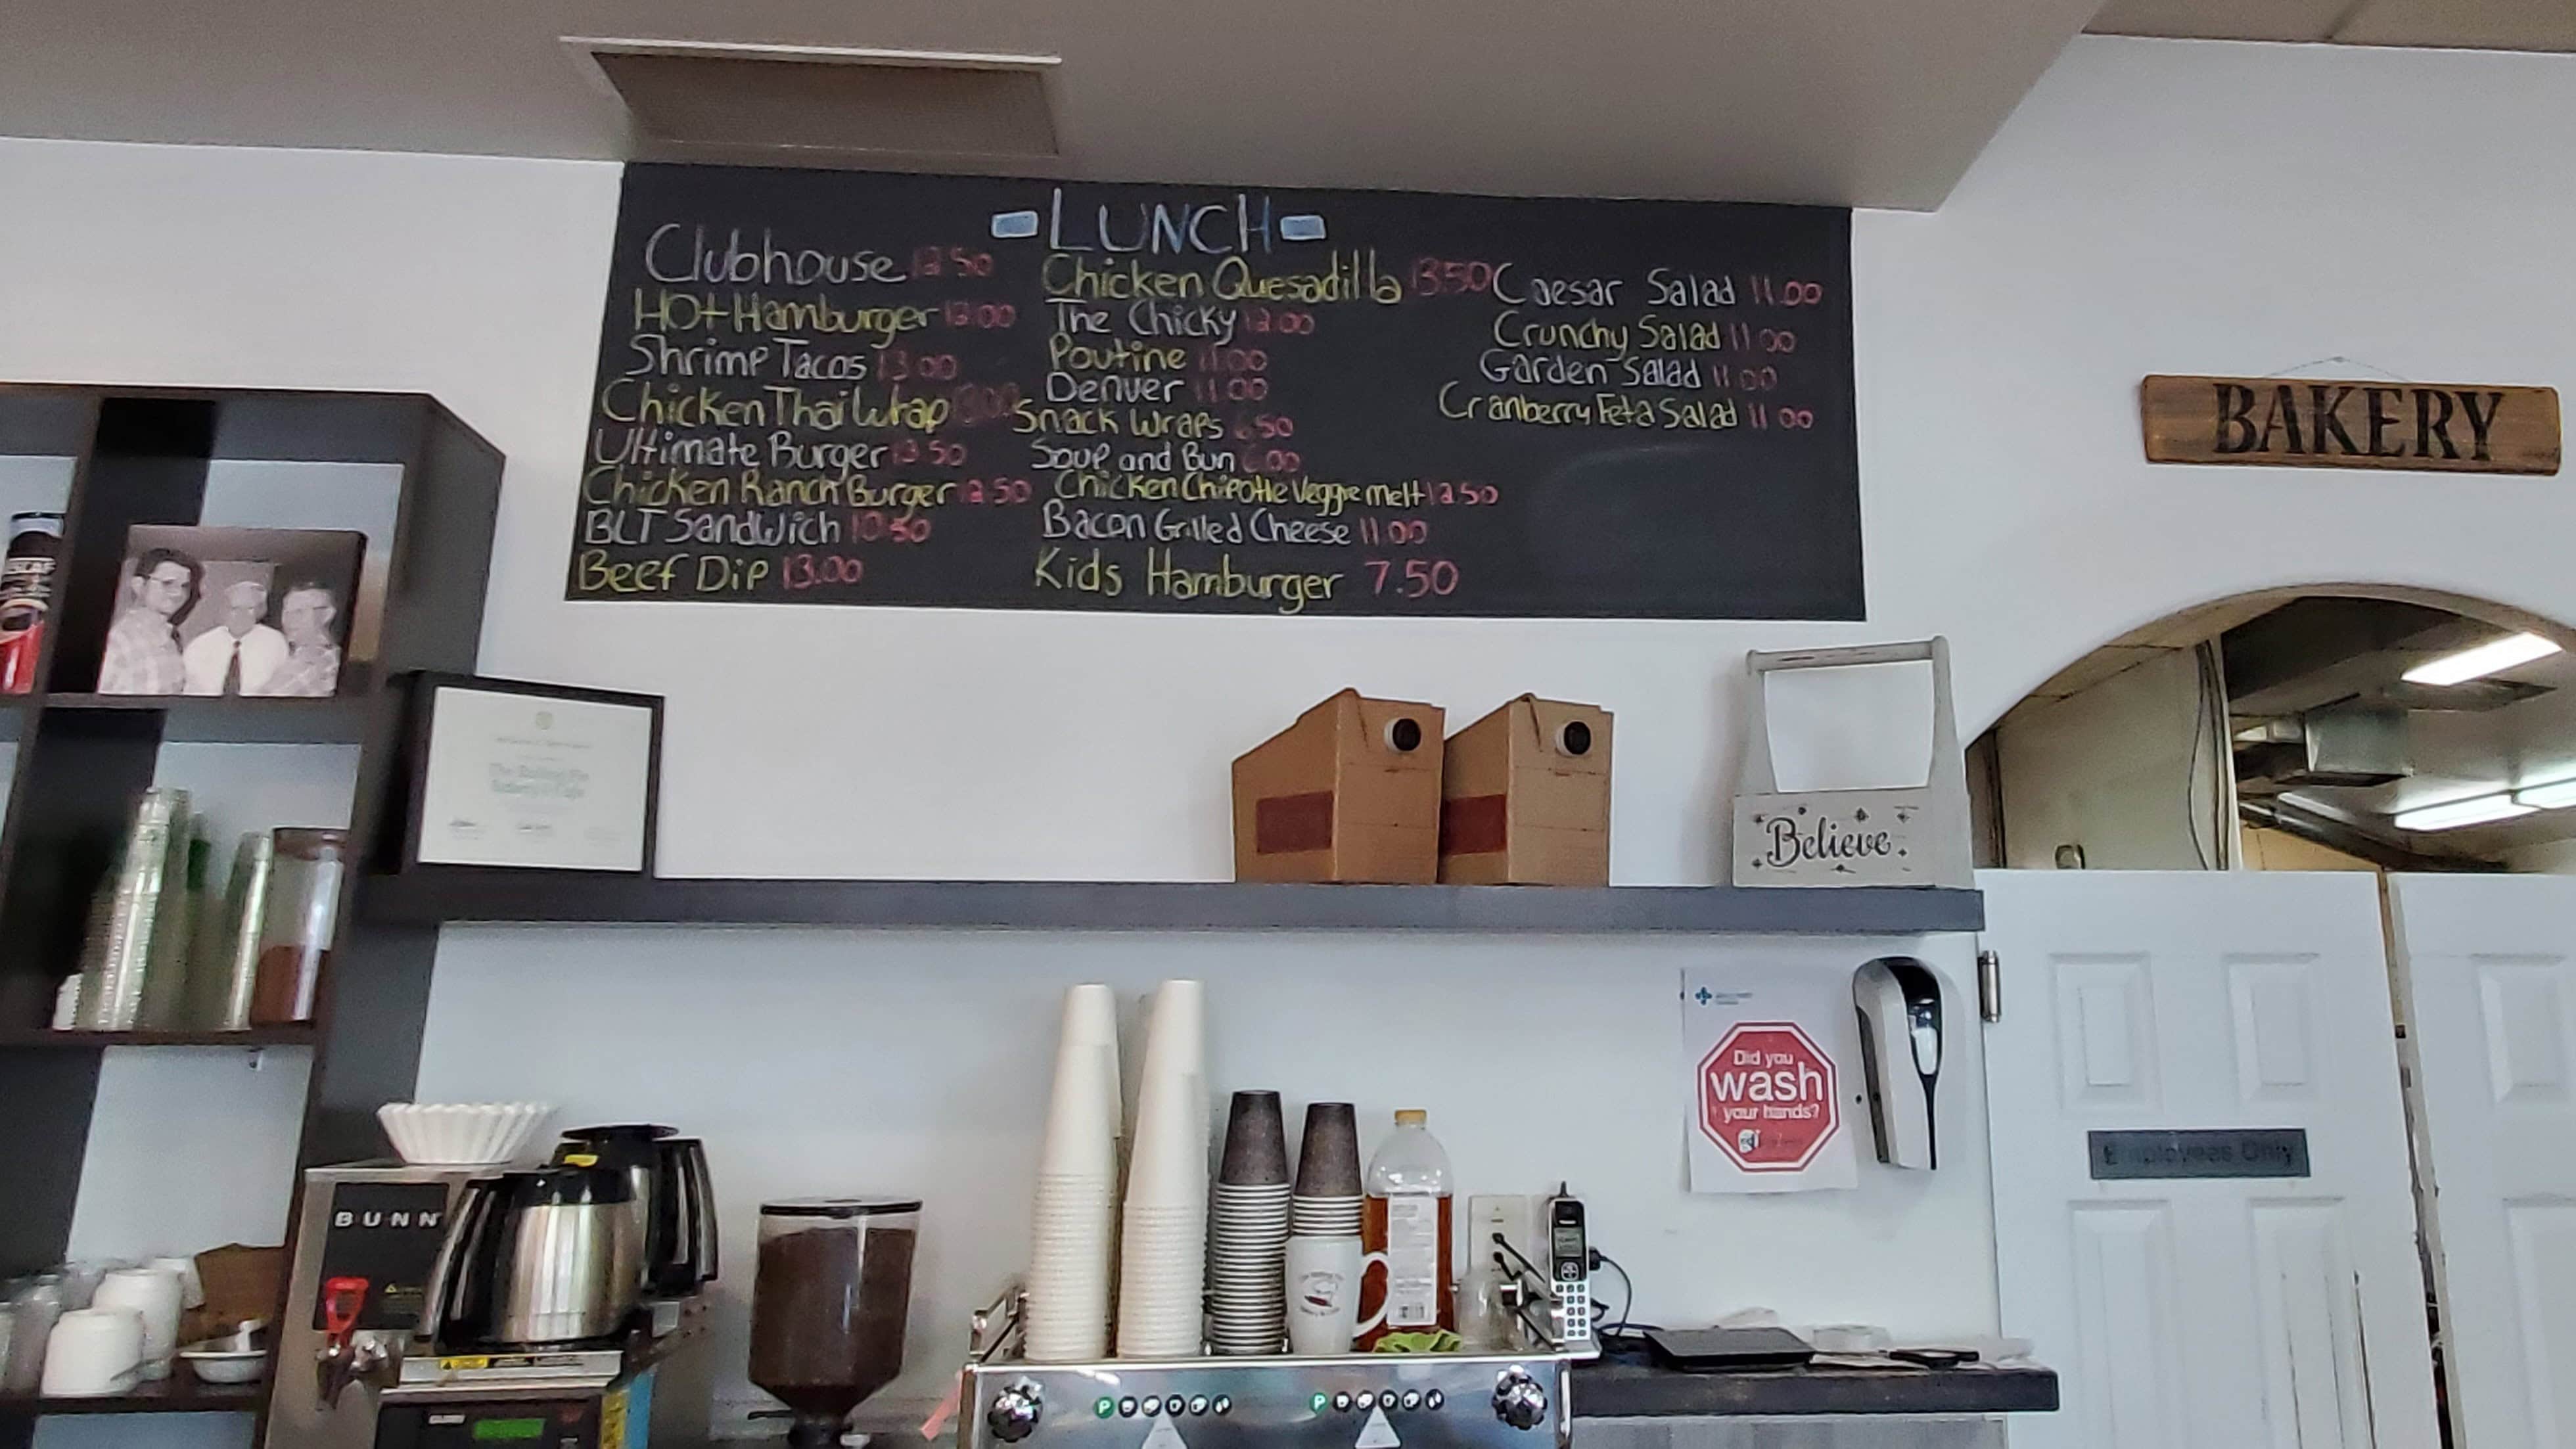 LUNCH
Clubhouse 12.50
Hot Hamburger 12.00
Shrimp Tacos 13.00
Chicken Thai Wrap
Ultimate Burger 13.50
Chicken Ranch Burger 12.50
BLT Sandwich 10.50
Beef Dip 13.00
Chicken Quesadilla 13.50
The Chicky 12.00
Poutine 11.00
Denver 11.00
Snack Wraps 6.50
Soup and Bun 6.00
Chicken Chipotle Veggie melt 12.50
Bacon Grilled Cheese 11.00
Kids Hamburger 7.50
Caesar Salad 11.00
Crunchy Salad 11.00
Garden Salad 11.00
Cranberry Feta Salad 11.00
BAKERY
Believe
Did you
wash
your hands?
Employees Only
BUNN